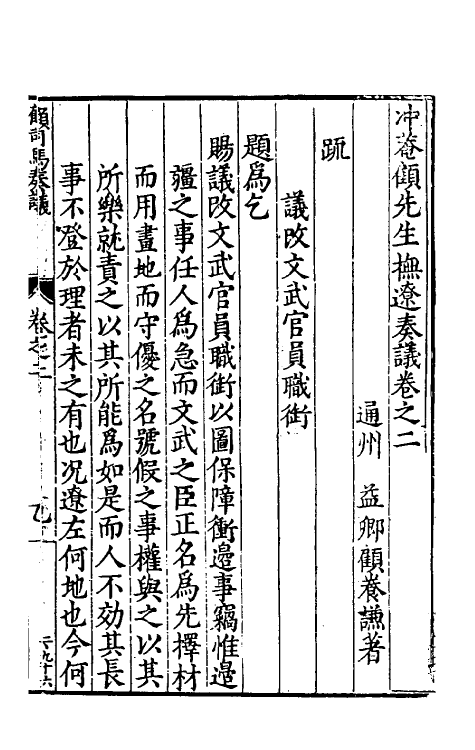 冲菴顧先生撫遼奏議卷之二
通州 益卿顧養謙著
䟽
議改文武官員職銜
題爲乞
賜議改文武官員職銜以圖保障衝邊事竊惟邊
疆之事任人爲急而文武之臣正名爲先擇材
而用畫地而守優之名號假之事權與之以其
所樂就責之以其所能爲如是而人不効其長
事不登於理者未之有也况遼左何地也今何
顧司馬奏議
卷之二